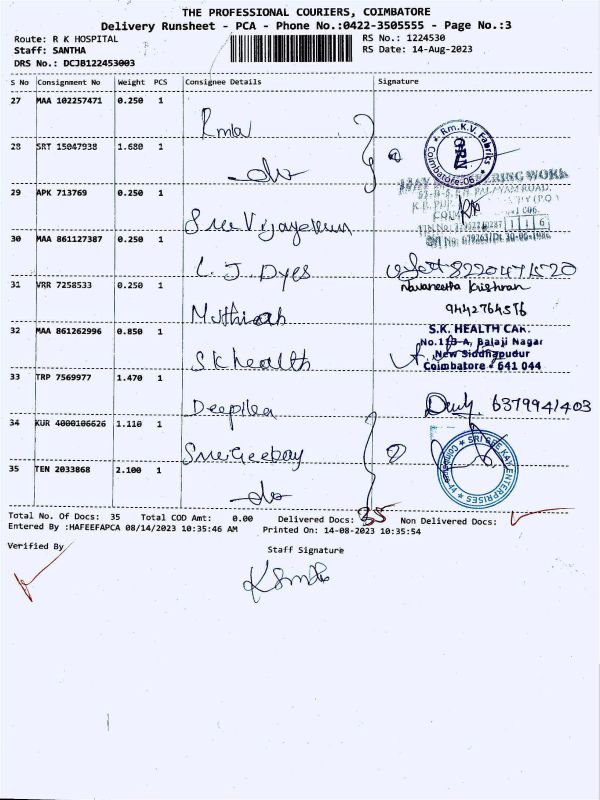 THE PROFESSIONAL COURIERS, COIMBATORE
Delivery Runsheet - PCA - Phone No.:0422-3505555 - Page No.:3
Route: R K HOSPITAL RS No.: 1224530
Staff: SANTHA RS Date: 14-Aug-2023
DRS No.: DCJB122453003
S No Consignment No Weight PCS Consignee Details Signature
27 MAA 102257471 0.250 1
Rmla
Rm.K.V. Fabriks
Coimbatore-06
28 SRT 15047938 1.680 1
do
29 APK 713769 0.250 1
Sree Vijayekum
30 MAA 861127387 0.250 1
L. J. Dyes 8220471520
31 VRR 7258533 0.250 1
Navaneetha Krishnan
Muthiah 9442764576
32 MAA 861262996 0.850 1
S.K. HEALTH CAR.
No.113-A, Balaji Nagar
New Siddhapudur
Coimbatore - 641 044
S K health
33 TRP 7569977 1.470 1
Deepika 6379941403
34 KUR 4000106626 1.110 1
Sree Geebay
SRI SREE KAY ENTERPRISES
35 TEN 2033868 2.100 1
do
Total No. Of Docs: 35 Total COD Amt: 0.00 Delivered Docs: 35 Non Delivered Docs:
Entered By :HAFEEFAPCA 08/14/2023 10:35:46 AM Printed On: 14-08-2023 10:35:54
Verified By
Staff Signature